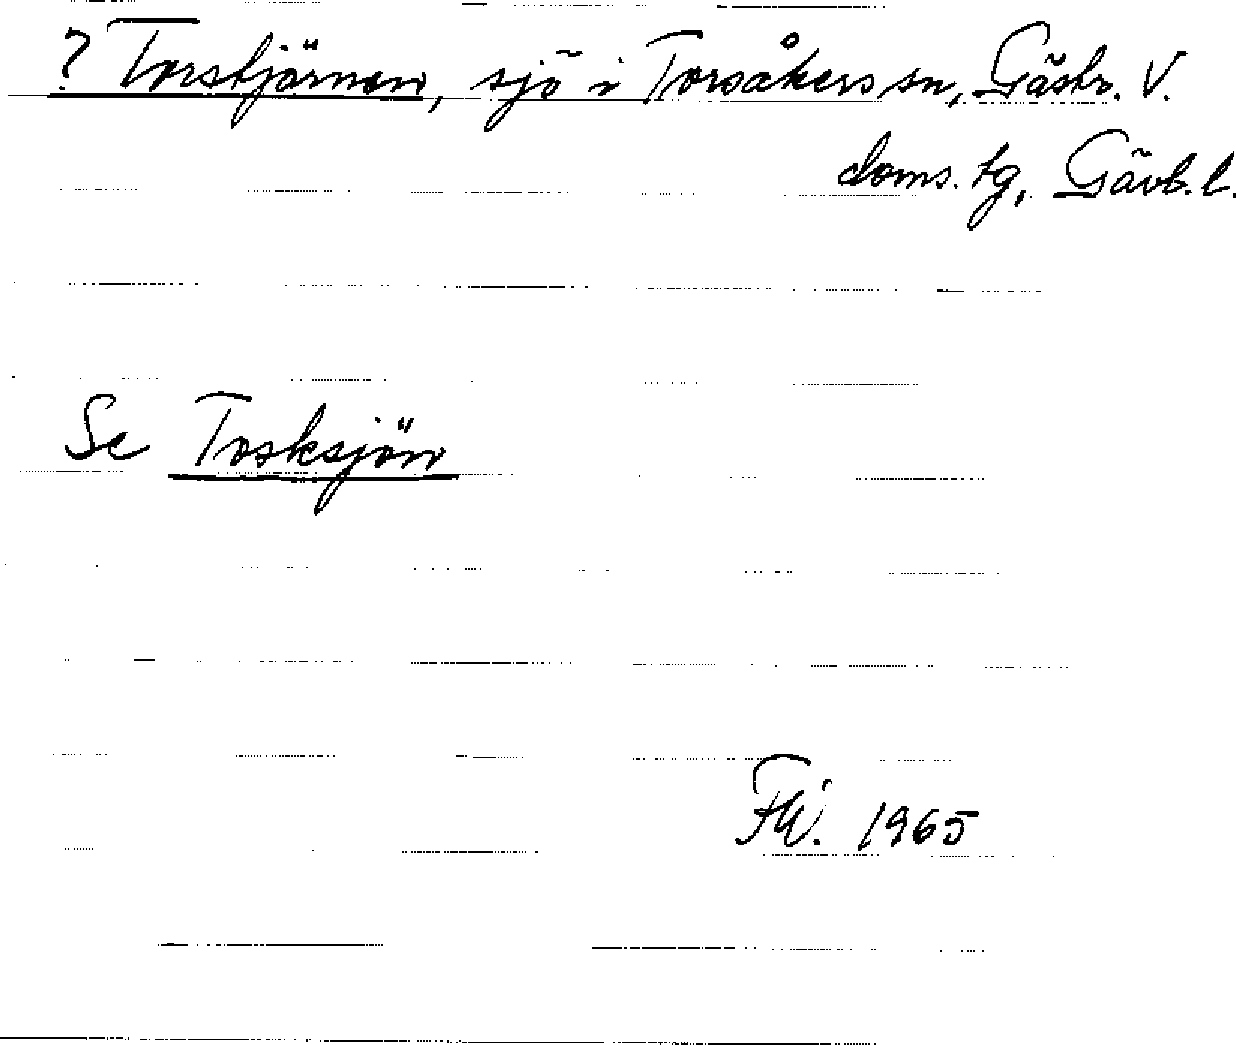 ? Torstjärnen, sjö i Torsåkers sn, Gästr. V.
doms. tg, Gävb. l.
Se Torsksjön
1965